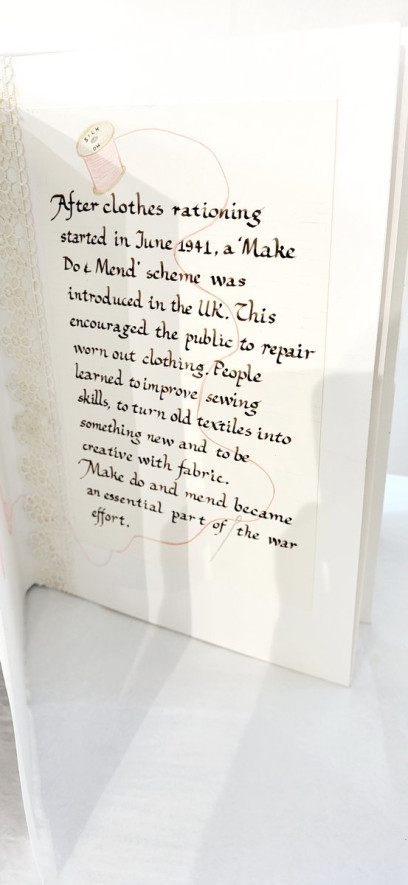 SILK
ON
After clothes rationing
started in June 1941, a 'Make
Do & Mend' scheme was
introduced in the UK. This
encouraged the public to repair
worn out clothing. People
learned to improve sewing
skills, to turn old textiles into
something new and to be
creative with fabric.
Make do and mend became
an essential part of the war
effort.